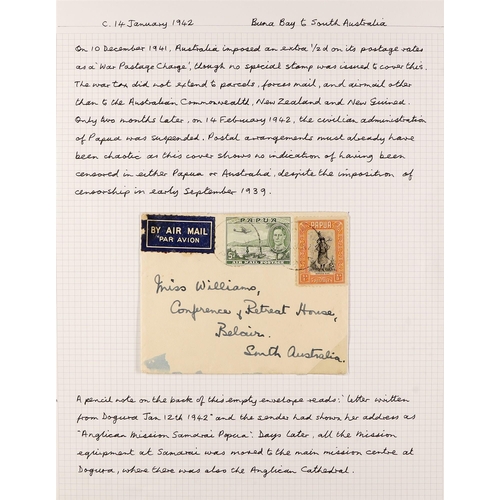 c. 14 January 1942 Buna Bay to South Australia
On 10 December 1941, Australia imposed an extra 1/2d on its postage rates
as a 'War Postage Charge', though no special stamp was issued to cover this.
The war tax did not extend to parcels, forces mail, and airmail other
than to the Australian Commonwealth, New Zealand and New Guinea.
Only two months later, on 14 February 1942, the civilian administration
of Papua was suspended. Postal arrangements must already have
been chaotic as this cover shows no indication of having been
censored in either Papua or Australia, despite the imposition of
censorship in early September 1939.
BY AIR MAIL
"PAR AVION"
PAPUA
AIR MAIL POSTAGE
PAPUA
Miss Williams,
Conference & Retreat House,
Belair.
South Australia.
A pencil note on the back of this empty envelope reads: "letter written
from Dogura Jan 12th 1942" and the sender had shown her address as
"Anglican Mission Samarai Papua". Days later, all the mission
equipment at Samarai was moved to the main mission centre at
Dogura, where there was also the Anglican Cathedral.